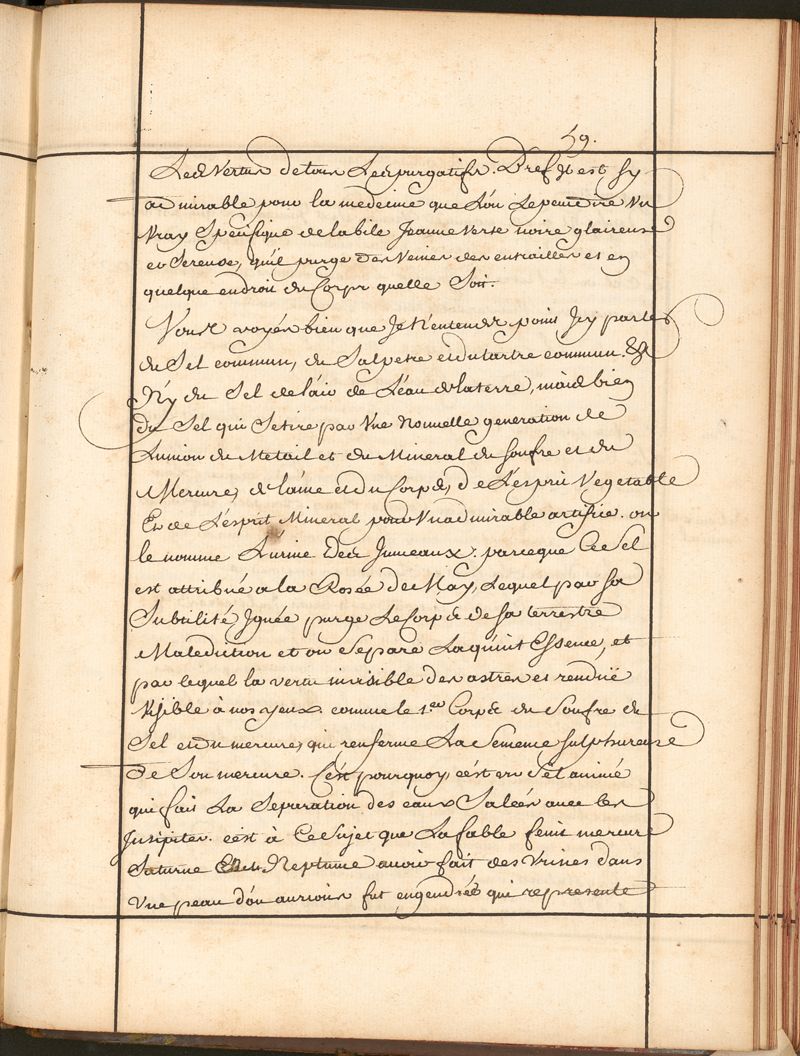 59.
Les Vertus de tous Les purgatifs. Bref Il est sy
admirable pour la medecine que L'on Le peut dire Un
Vray Specifique de la bile Jeaune Verte noire glaireuse
et Sereuse, qu'il purge des Veines des entrailles et en
quelque endroit du Corps quelle Soit.
Vous voyés bien que Je N'entends point Icy parler
du Sel commun, du Salpetre et du tartre commun.
N'y du Sel de l'air de L'eau de la terre, mais bien
du Sel qui Se tire par Une Nouvelle generation de
L'union du Metail et du Mineral du soufre et du
Mercure, de l'ame et du Corps, de L'esprit Vegetable
Et de L'esprit Mineral pour Un admirable artifice. on
le nomme L'urine Des Jumeaux. parceque Ce Sel
est attribué a la Rosée de May, Lequel par sa
Subtilité Ignée purge Le Corps de sa terrestre
Malediction et on Separe La quint Essence, et
par lequel la vertu invisible des astres est rendüe
Visible à nos yeux comme le 1.er Corps du Soufre du
Sel et du mercure, qui renferme La Semence sulphureuse
de Son mercure. C'est pourquoy c'est en Sel animé
qui fait La Separation des eaux Salées avec les
Insipides. c'est à Ce Sujet que La fable feint mercure
Saturne Et Neptune avoir fait des Urines dans
Une peau d'ou aurions fut engendrés qui represente